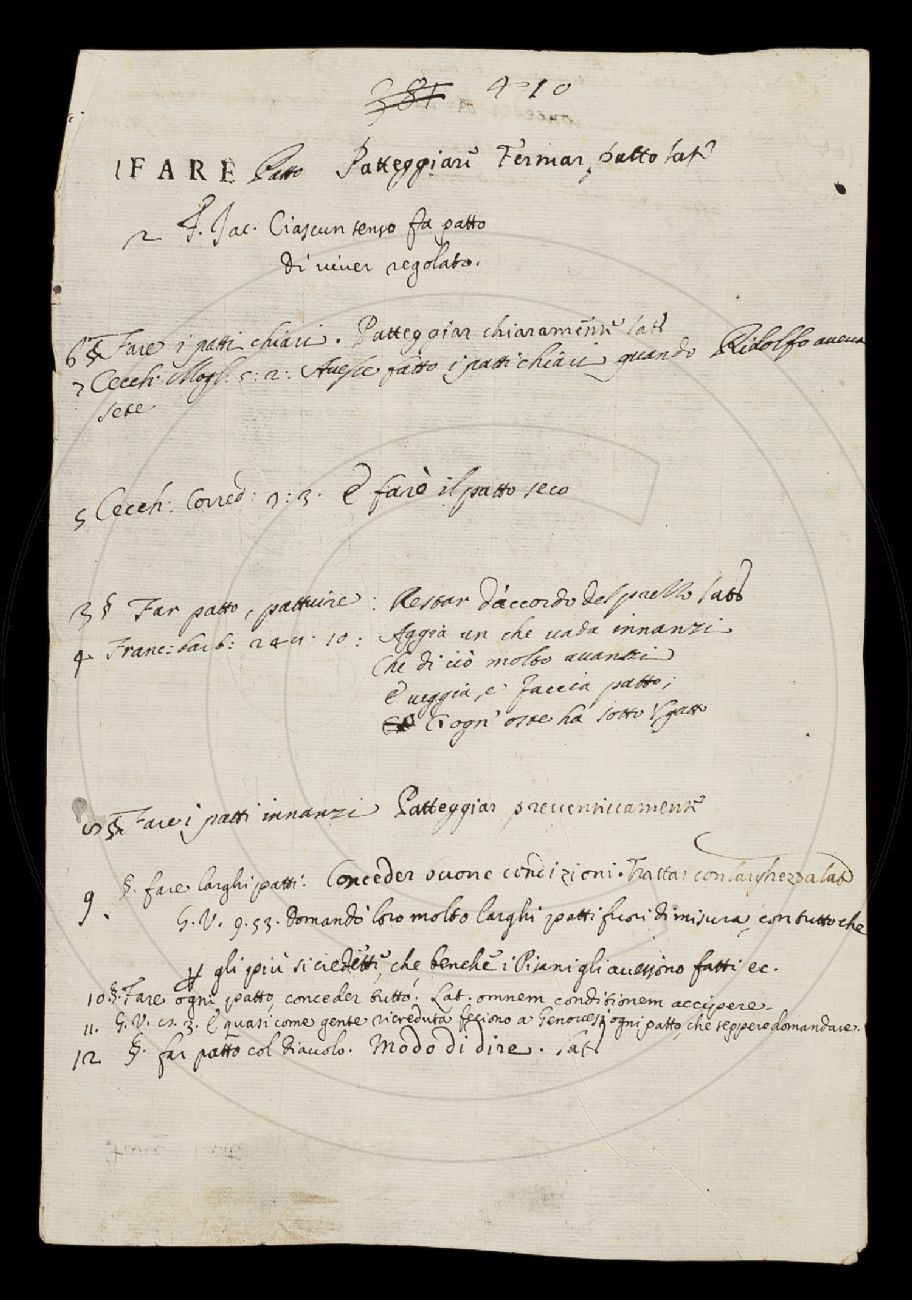 381 410
1 FARE Patto Patteggiare Fermar patto lat.
2 F. Jac. Ciascun senso fa patto
di viver regolato.
6 § Fare i patti chiari. Patteggiar chiaramente lat.
7 Cecch. Mogl. 5: 2: Avesse fatto i patti chiari quando Ridolfo aveva
sete
5 Cecch: Corred: 3: 3. E farò il patto seco
3 § Far patto, pattuire: Restar d'accordo del prezzo lat.
4 Franc: barb: 241: 10: Aggia un che vada innanzi
Che di ciò molto avanzi
E veggia, e faccia patto;
Ch'ogn' oste ha sotto 'l gatto
8 § Fare i patti innanzi Patteggiar preventivamente
9. §. fare larghi patti. Conceder buone condizioni. Trattar con larghezza lat.
G. V. 9. 53. domandò loro molto larghi patti fuori di misura, con tutto che
gli più si credette, che, benchè i Pisani gli avessono fatti ec.
10 §. Fare ogni patto, conceder tutto. Lat. omnem conditionem accipere.
11. G. V. E quasi come gente ricreduta feciono a Genovesi ogni patto, che seppero domandare.
12 §. far patto col diavolo. Modo di dire. lat.